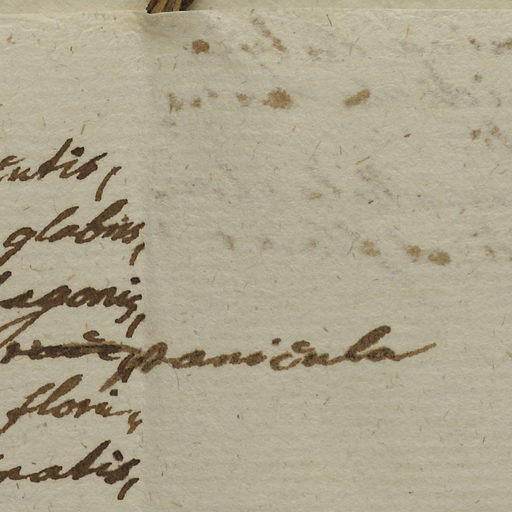 entis,
glabris,
agonis,
panicula
floris,
natis,